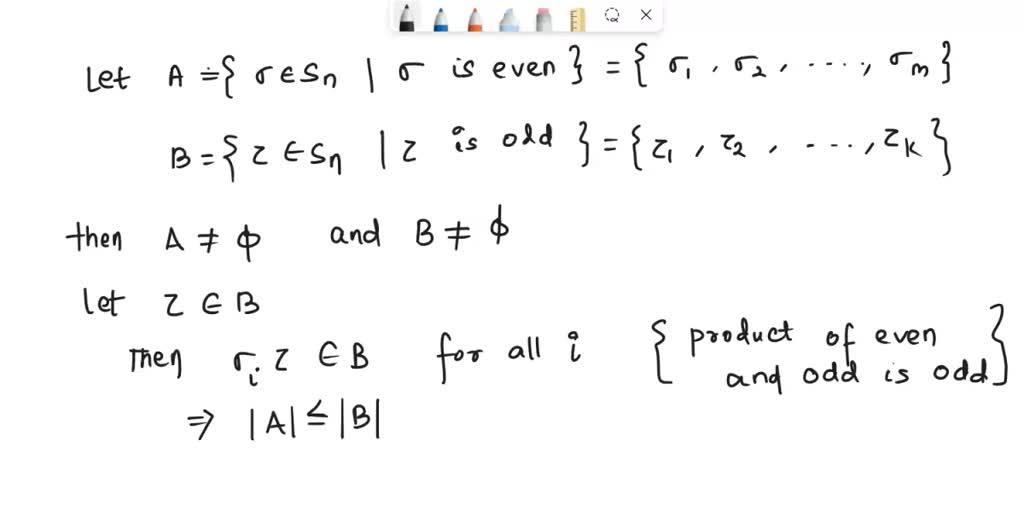 Let A = { σ ∈ Sn | σ is even } = { σ1 , σ2 , ...., σm }
B = { τ ∈ Sn | τ is odd } = { τ1 , τ2 , ...., τk }
then A ≠ ϕ and B ≠ ϕ
let τ ∈ B
Then σi τ ∈ B for all i { product of even
and odd is odd }
⇒ |A| ≤ |B|